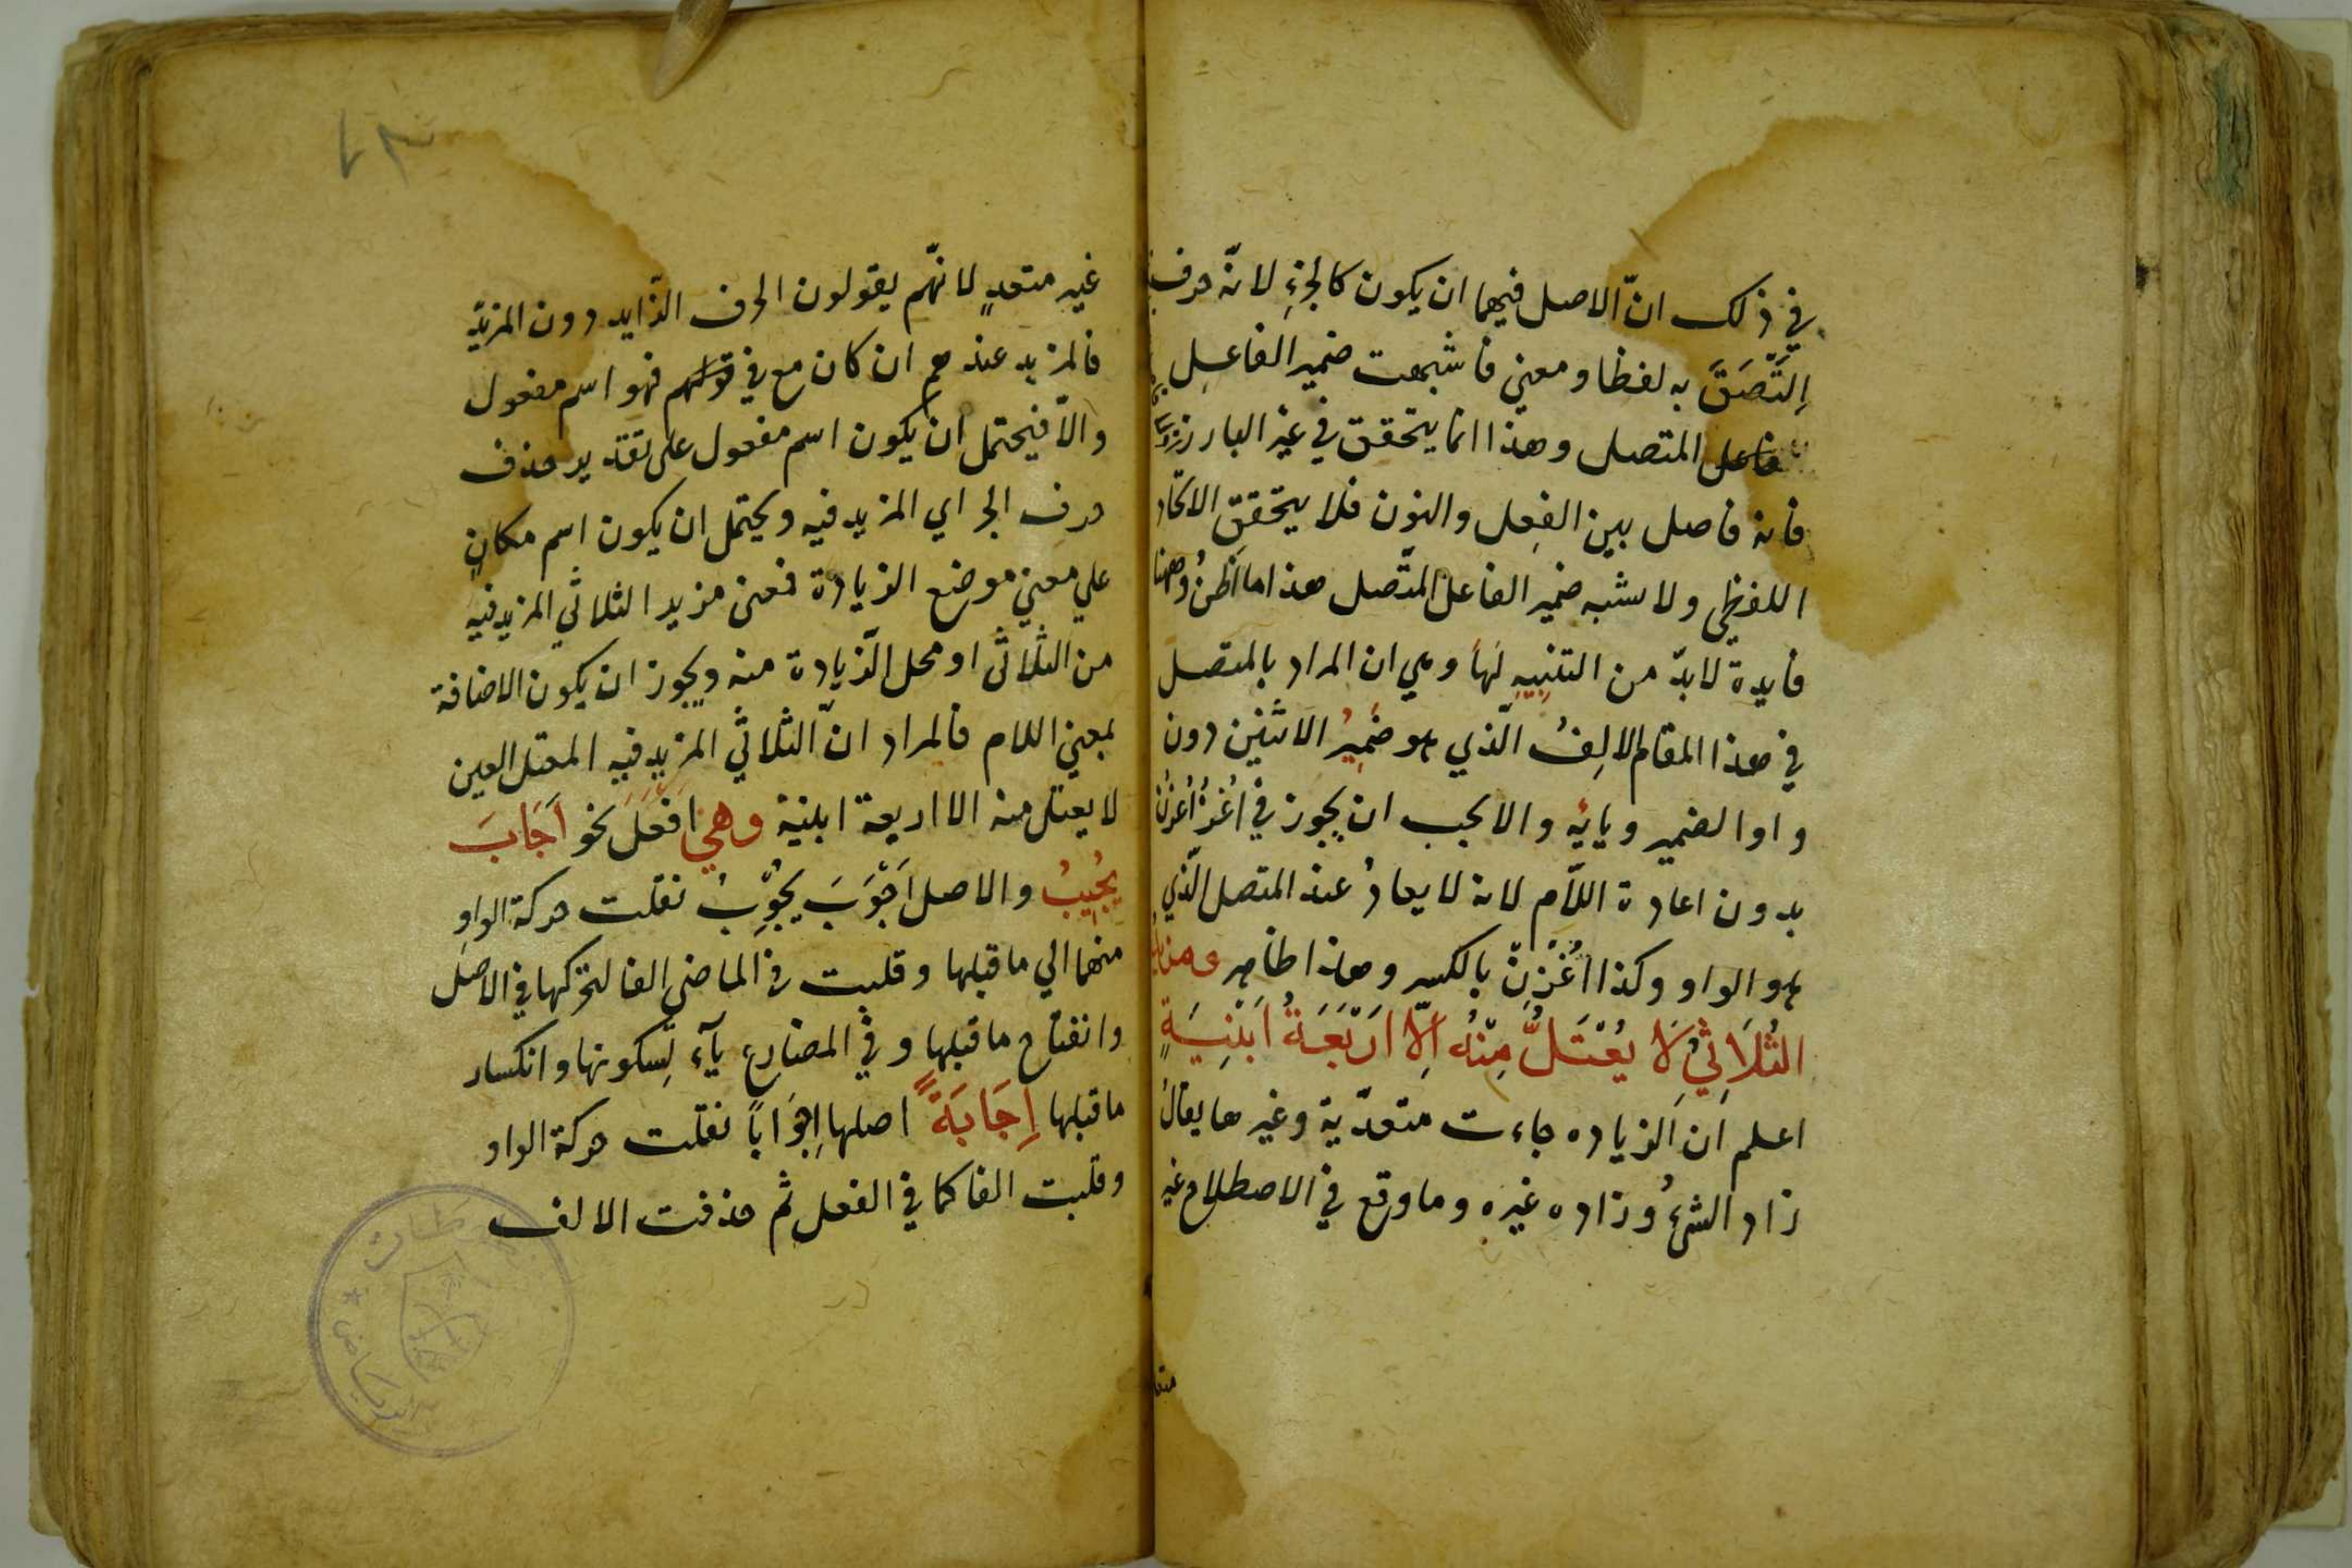 في ذلك انّ الاصل فيهما ان يكون كالجزءِ لانّه حرف
اِلتَصَقَ به لفظا ومعني فاشبهت ضمير الفاعِل
فاعل المتصل وهذا انما يتحقق في غير البارز
فانه فاصل بين الفِعل والنون فلا يتحقق الاتحاد
اللفظي ولا شبه ضمير الفاعل المتّصل هذا ما اظنُ وههنا
فايدة لابدّ من التنبِيهِ لهَا وهي ان المراد بالمتصل
في هذا المقام الالِفُ الّذي هو ضمِيرُ الاثنَين دون
واو الضمير ويائِه والا يجب ان يجوز في اُغزُ اُغزُنْ
بدون اعادة اللاّم لانه لا يعادُ عند المتصل الّذي
هو الواو وكذا اُغْزِنْ بالكسر وهذا ظاهر ومزيد
الثُلاَثِيّ لاَ يُعْتَلُّ مِنْهُ اِلاّ اَرْبَعَةُ اَبْنِيَةٍ
اعلم ان الزياده جاءت متعدّية وغيرها يقالُ
زاد الشئُ وزاده غيره وما وقع في الاصطلاح غير
متعد
غير متعدٍ لانهّم يقولون الحرف الزّايد دون المزيدّ
فالمزيد عندهم ان كان مع في قولهم فهو اسم مفعول
والاّ فيحتمل ان يكون اسم مفعول على تقدير حذف
حرف الجر اي المزيد فيه ويحتمل ان يكون اسم مكانٍ
علي معني موضع الزيادة فمعنى مزيد الثلاثي المزيد فيه
من الثلاثّى او محل الزّيادة منه ويجوز ان يكون الاضافة
بمعني اللام فالمراد انّ الثلاثي المزيد فيه المعتل العين
لا يعتل منه الا اربعة ابنية وهي اَفْعَلَ نحو اَجَابَ
يُجِيبُ والاصل اَجْوَبَ يُجْوِبُ نقلت حركة الواوِ
منهما الي ما قبلها وقلبت في الماضي الفا لتحركها في الاصل
وانفتاح ما قبلها وفي المضارع يآء لِسكونها وانكسار
ما قبلها اِجَابَةً اصلها اِجْوَاباً نقلت حركة الواو
وقلبت الفا كما في الفعل ثم حذفت الالف